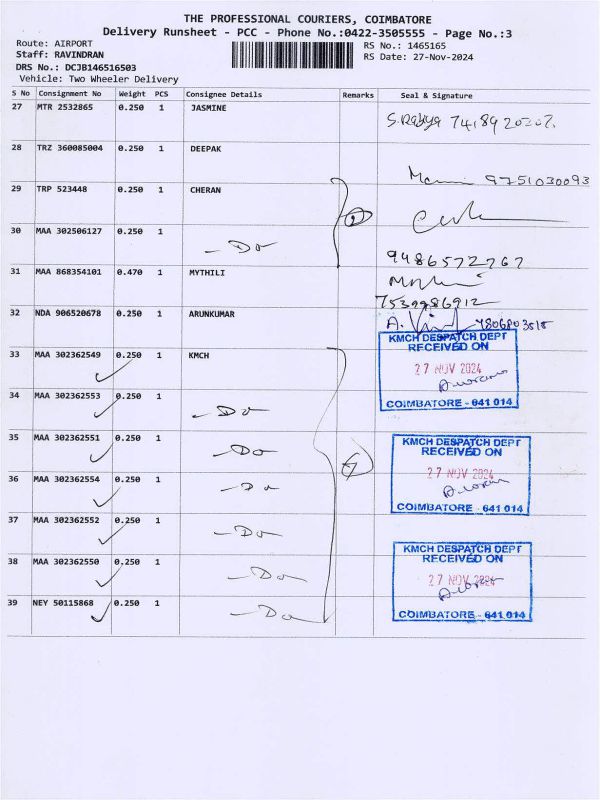 THE PROFESSIONAL COURIERS, COIMBATORE
Delivery Runsheet - PCC - Phone No.:0422-3505555 - Page No.:3
Route: AIRPORT
Staff: RAVINDRAN
DRS No.: DCJB146516503
Vehicle: Two Wheeler Delivery
RS No.: 1465165
RS Date: 27-Nov-2024
S No Consignment No Weight PCS Consignee Details Remarks Seal & Signature
27 MTR 2532865 0.250 1 JASMINE
28 TRZ 360085004 0.250 1 DEEPAK
9751030093
29 TRP 523448 0.250 1 CHERAN
30 MAA 302506127 0.250 1 - Do
9486572767
31 MAA 868354101 0.470 1 MYTHILI
32 NDA 906520678 0.250 1 ARUNKUMAR
33 MAA 302362549 0.250 1 KMCH
KMCH DESPATCH DEPT
RECEIVED ON
27 NOV 2024
COIMBATORE - 641 014
34 MAA 302362553 0.250 1 - Do
35 MAA 302362551 0.250 1 - Do
KMCH DESPATCH DEPT
RECEIVED ON
27 NOV 2024
COIMBATORE - 641 014
36 MAA 302362554 0.250 1 - Do
37 MAA 302362552 0.250 1 - Do
38 MAA 302362550 0.250 1 - Do
KMCH DESPATCH DEPT
RECEIVED ON
27 NOV 2024
COIMBATORE - 641 014
39 NEY 50115868 0.250 1 - Do